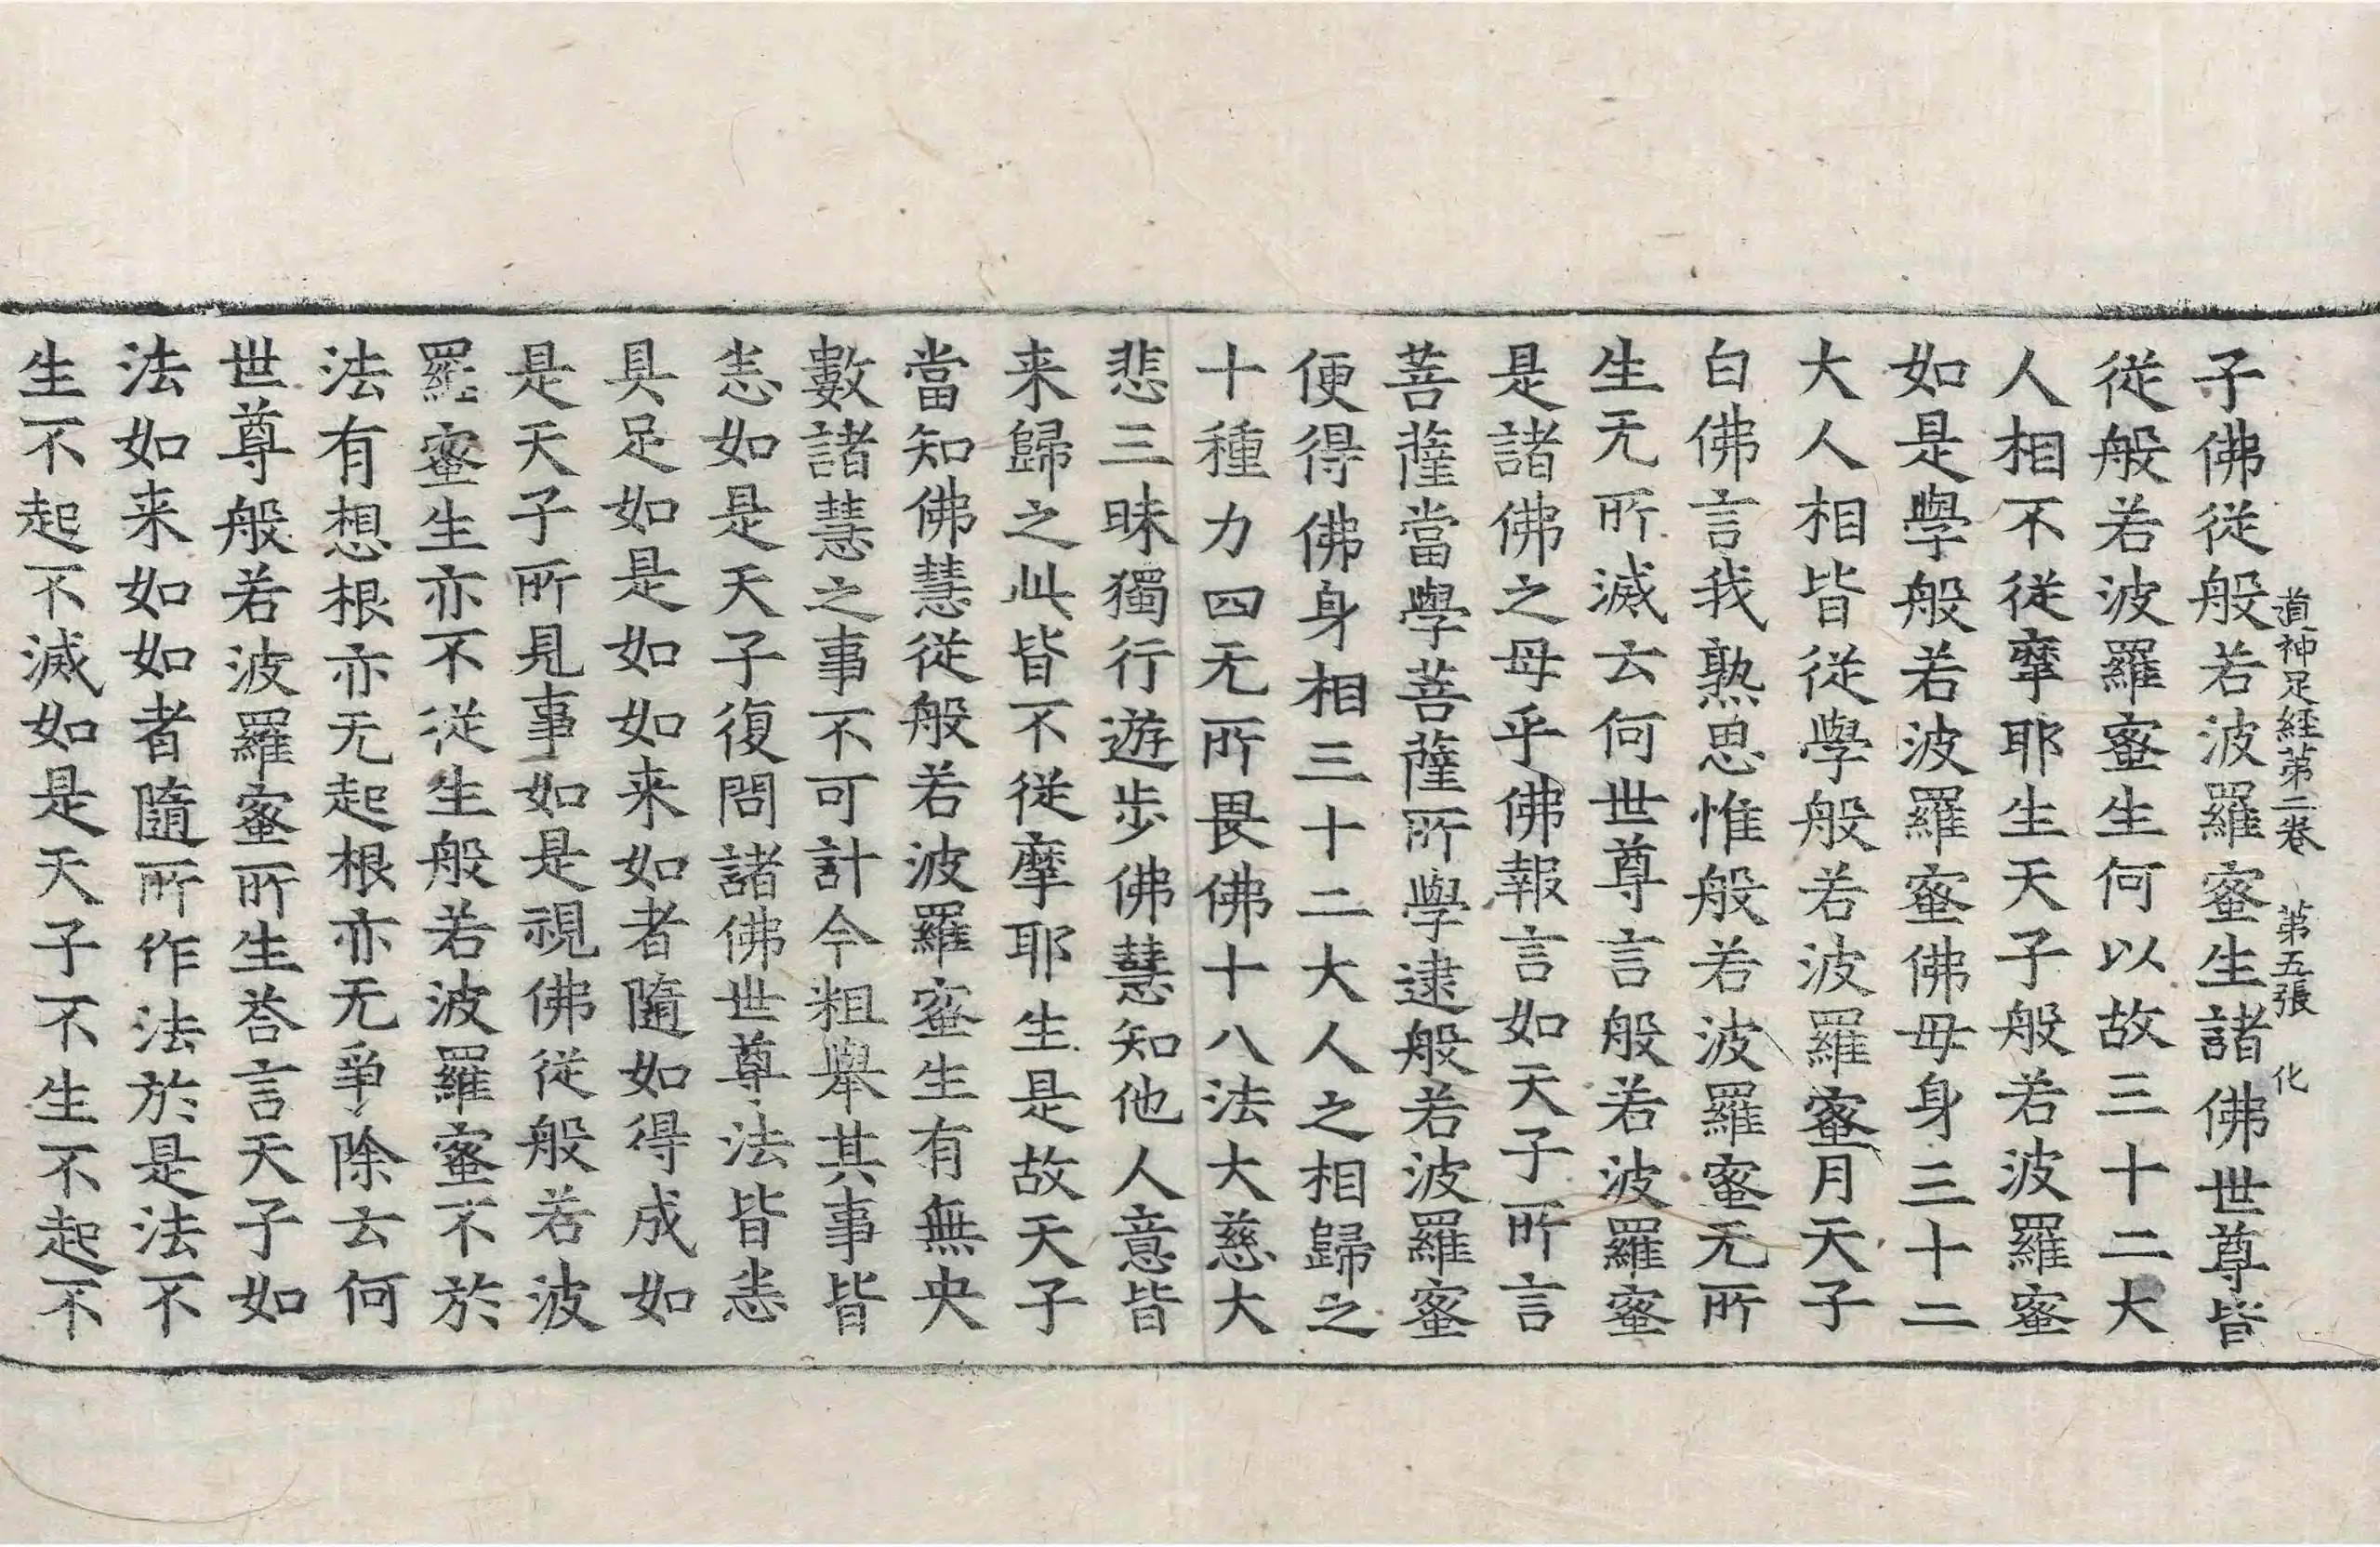 道神足經第二卷　第五張　化
子佛從般若波羅蜜生諸佛世尊皆
從般若波羅蜜生何以故三十二大
人相不從摩耶生天子般若波羅蜜
如是學般若波羅蜜佛母身三十二
大人相皆從學般若波羅蜜月天子
白佛言我熟思惟般若波羅蜜无所
生无所滅云何世尊言般若波羅蜜
是諸佛之母乎佛報言如天子所言
菩薩當學菩薩所學逮般若波羅蜜
便得佛身相三十二大人之相歸之
十種力四无所畏佛十八法大慈大
悲三昧獨行遊步佛慧知他人意皆
来歸之此皆不從摩耶生是故天子
當知佛慧從般若波羅蜜生有無央
數諸慧之事不可計今粗舉其事皆
悉如是天子復問諸佛世尊法皆悉
具足如是如如来如者隨如得成如
是天子所見事如是視佛從般若波
羅蜜生亦不從生般若波羅蜜不於
法有想根亦无起根亦无爭除云何
世尊般若波羅蜜所生荅言天子如
法如来如如者隨所作法於是法不
生不起不滅如是天子不生不起不